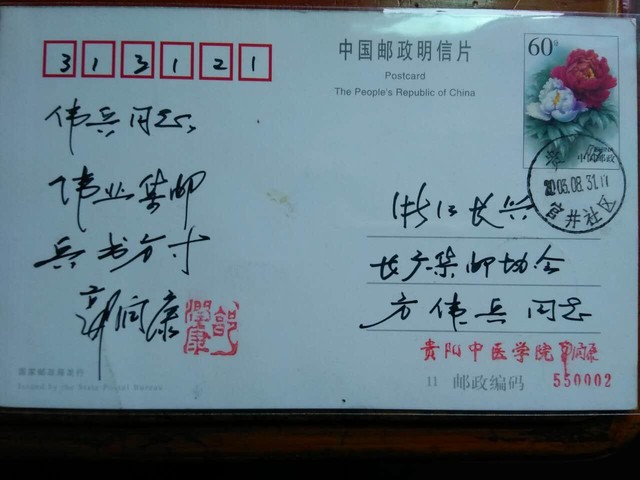 313121
中国邮政明信片
Postcard
The People's Republic of China
60分
中国邮政
2003.08.31.11
社区
伟兵同志:
伟业集邮
兵书方寸
郭润康
郭润康
浙江长兴
长广集邮协会
方伟兵同志
贵阳中医学院 郭润康
11 邮政编码 550002
国家邮政局发行
Issued by the State Postal Bureau